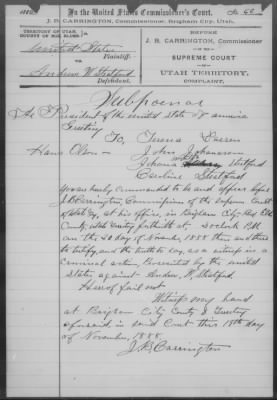 1888
In the United States Commissioner's Court.
No 60
J. B. CARRINGTON, Commissioner, Brigham City, Utah.
TERRITORY OF UTAH,
COUNTY OF BOX ELDER.
United States
Plaintiff.
vs.
Andrew W. Stratford
Defendant.
BEFORE
J. B. CARRINGTON, Commissioner
OF THE
SUPREME COURT
OF
UTAH TERRITORY,
COMPLAINT,
Subpoenae
The President of the united State of america
Greeting
To,
Hans Olson
John Johanson
Caroline Stratford
You are hereby Commanded to be and appear before
J. B. Carrington, Commissioner of the supreme Court
of Utah Ty, at his office, in Brigham City Box Elder
County, Utah Territory forthwith at 5 oclock P.M
on the 20 day of November 1888 then and there
to testify, and the truth to say as a witness in a
criminal action, Prosecuted by the united
States against Andrew, W, Stratford.
Hereof fail not
Witness my hand
at Brigham City County & Territory
aforesaid in said Court this 18th day
of November, 1888
J. B. Carrington